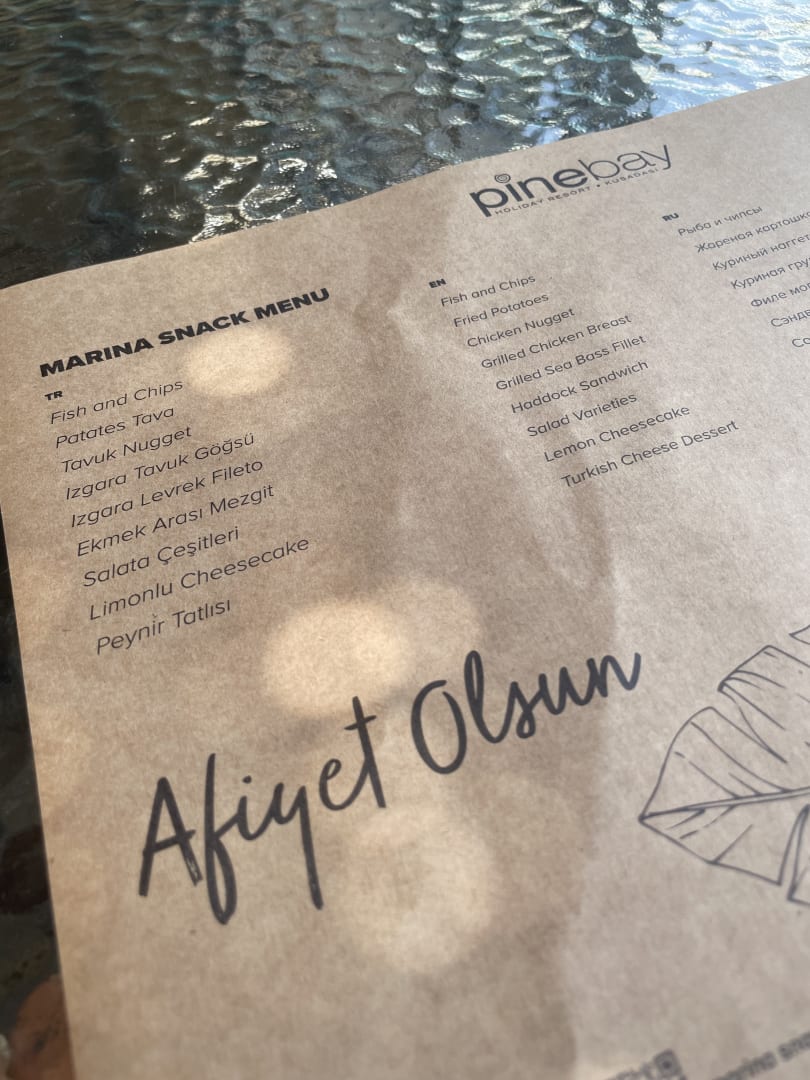 pinebay
HOLIDAY RESORT • KUŞADASI
MARINA SNACK MENU
TR
Fish and Chips
Patates Tava
Tavuk Nugget
Izgara Tavuk Göğsü
Izgara Levrek Fileto
Ekmek Arası Mezgit
Salata Çeşitleri
Limonlu Cheesecake
Peynir Tatlısı
EN
Fish and Chips
Fried Potatoes
Chicken Nugget
Grilled Chicken Breast
Grilled Sea Bass Fillet
Haddock Sandwich
Salad Varieties
Lemon Cheesecake
Turkish Cheese Dessert
RU
Рыба и чипсы
Жареная
Куриный
Куриная
Филе
Afiyet Olsun